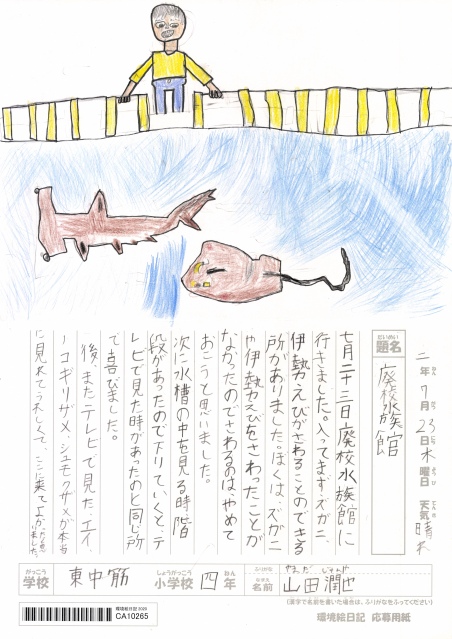 だいめい
題名
廃校水族館
二年7月23日木曜日 天気 晴れ
七月二十三日廃校水族館に
行きました。入ってまず、ズガニ、
伊勢えびがさわることのできる
所がありました。ぼくは、ズガニ
や伊勢えびをさわったことが
なかったのでさわるのは、やめて
おこうと思いました。
次に水槽の中を見る時階
段があったので下りていくと、テ
レビで見た時があったのと同じ所
で喜びました。
後、またテレビで見た、エイ、
ノコギリザメ、シュモクザメが本当
に見れてうれしくて、ここに来てよかったと思いました。
がっこう
学校
東中筋
しょうがっこう
小学校
四
ねん
年
ふりがな
なまえ
名前
やまだ じゅんや
山田潤也
(漢字で名前を書いた場合は、ふりがなをふってください)
環境絵日記2020
CA10265
環境絵日記 応募用紙